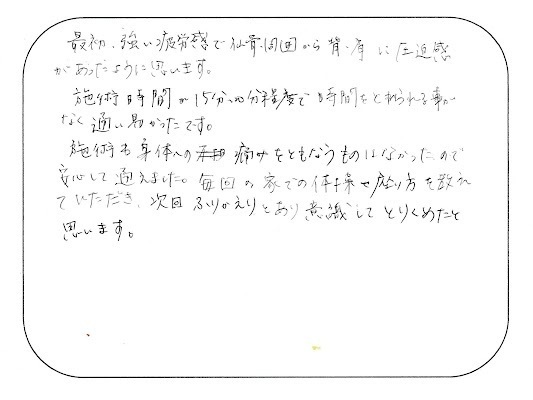 最初、強い疲労感で仙骨周囲から背・肩に圧迫感
があったように思います。
施術時間が15分〜20分程度で時間をとられる事が
なく通い易かったです。
施術も身体への 痛みをともなうものはなかったので
安心して通えました。毎回の家での体操や座り方を教え
ていただき、次回ふりかえりとあり意識してとりくめたと
思います。